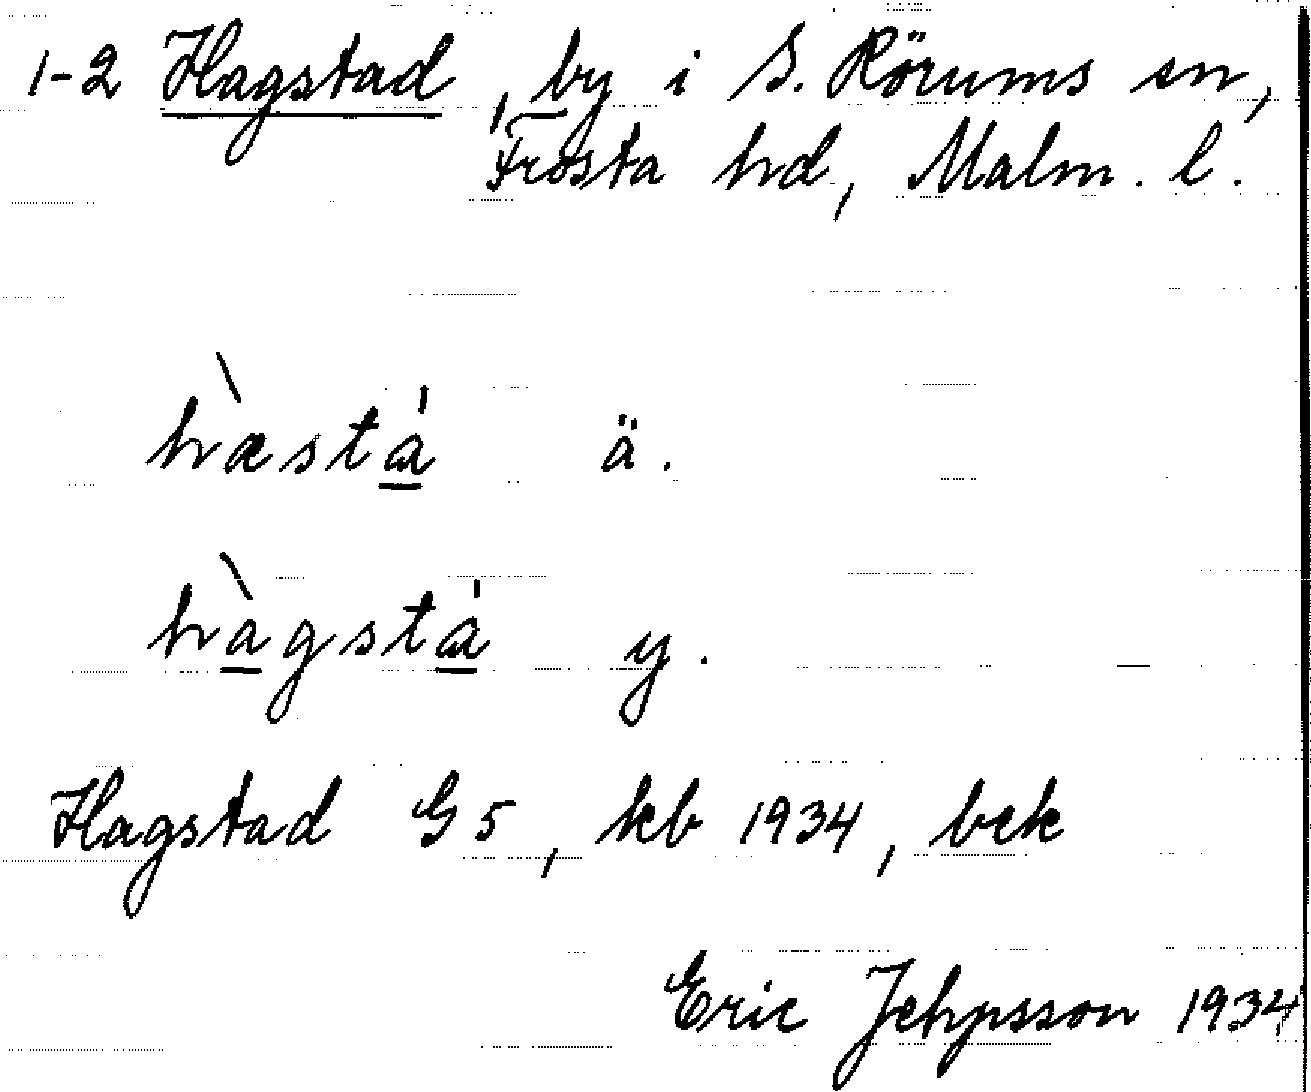 1-2 Hagstad, by i S. Rörums sn,
Frosta hd, Malm. l.
hæ̀stá̱ ä.
hà̱gstá̱ y.
Hagstad G5, kb 1934, bek
Eric Jehpsson 1934